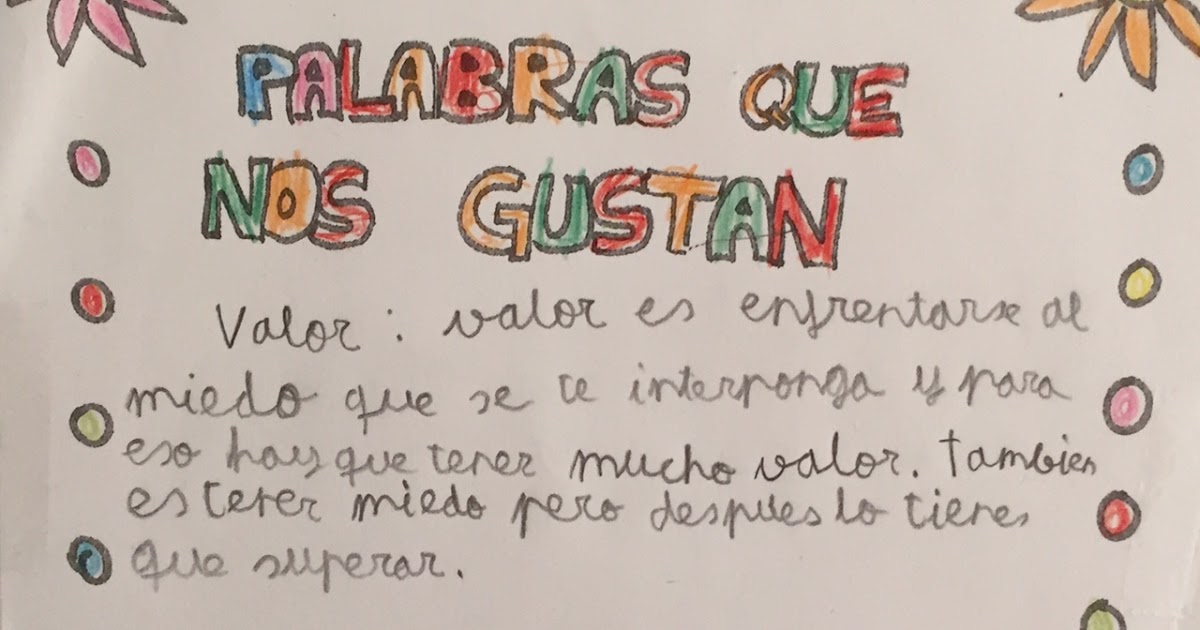 PALABRAS QUE
NOS GUSTAN
Valor: valor es enfrentarse al
miedo que se te interponga y para
eso hay que tener mucho valor. También
es tener miedo pero despues lo tienes
que superar.